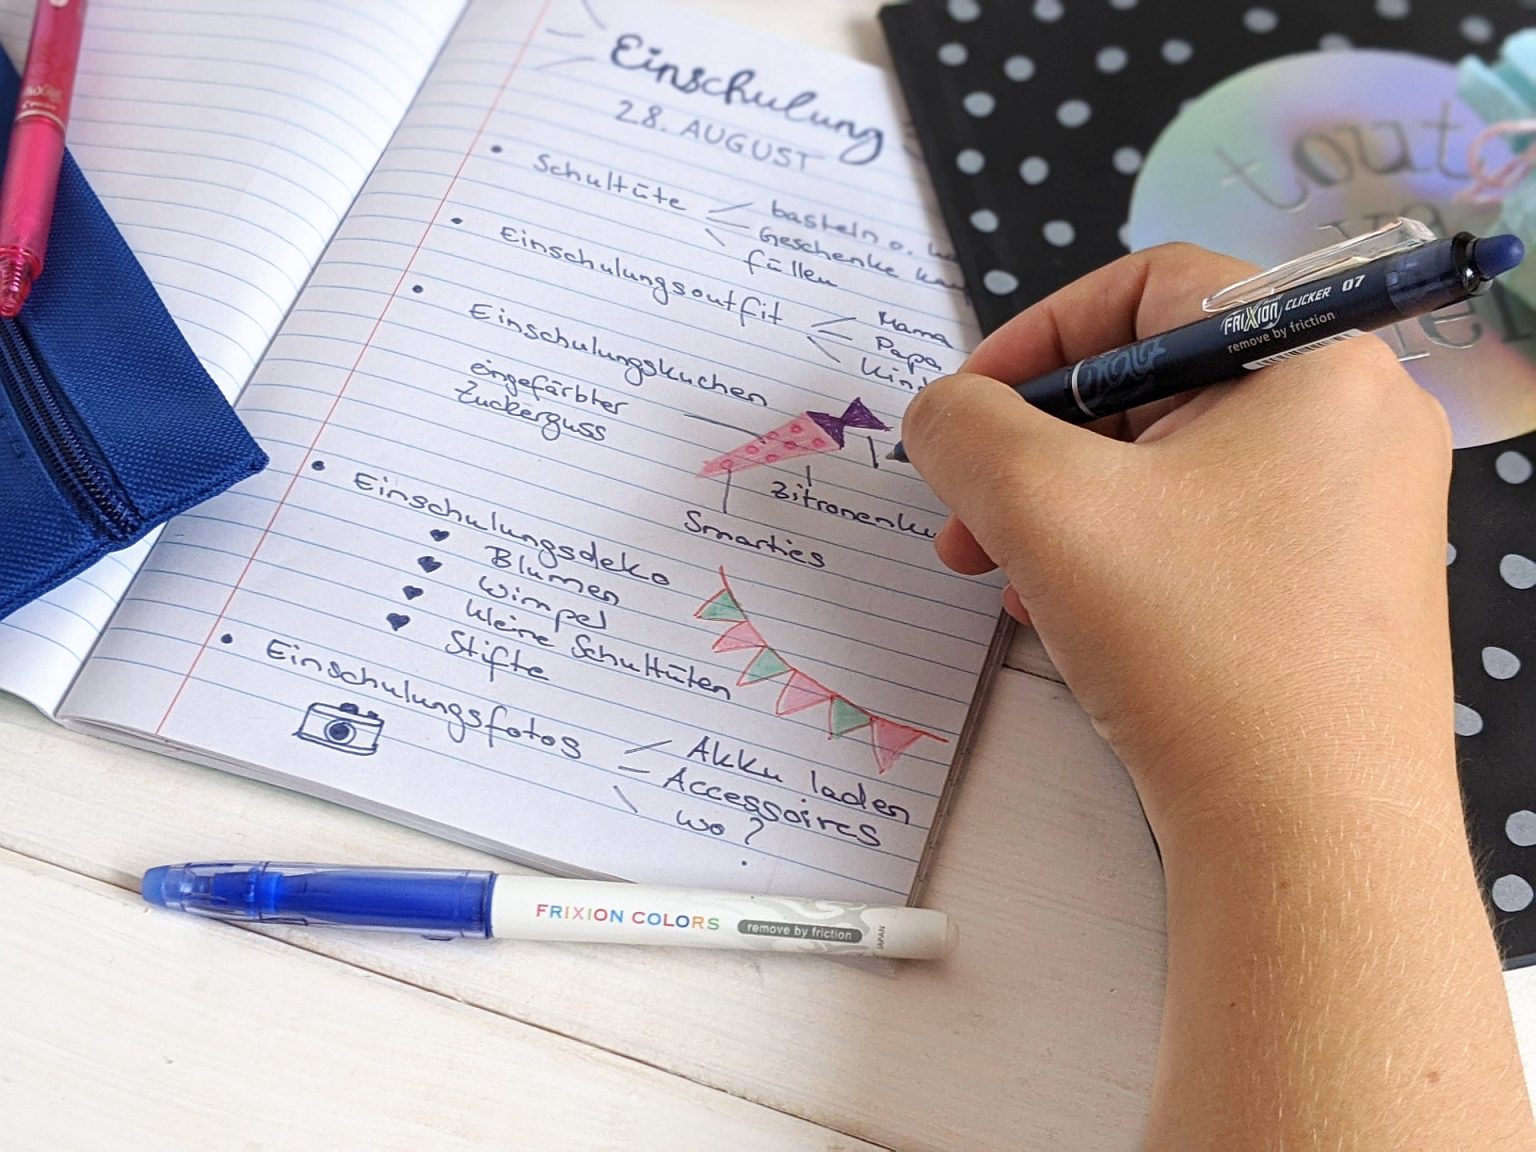 Einschulung
28. AUGUST
• Schultüte
basteln o.
Geschenke
füllen
• Einschulungsoutfit
Mama
Papa
Kind
• Einschulungskuchen
eingefärbter
Zuckerguss
Smarties
• Einschulungsdeko
♥ Blumen
♥ Wimpel
♥ kleine Schultüten
♥ Stifte
• Einschulungsfotos
Akku laden
Accessoires
wo?
FRIXION COLORS remove by friction JAPAN
FRIXION CLICKER 07
remove by friction
tout
FRIXION
PILOT